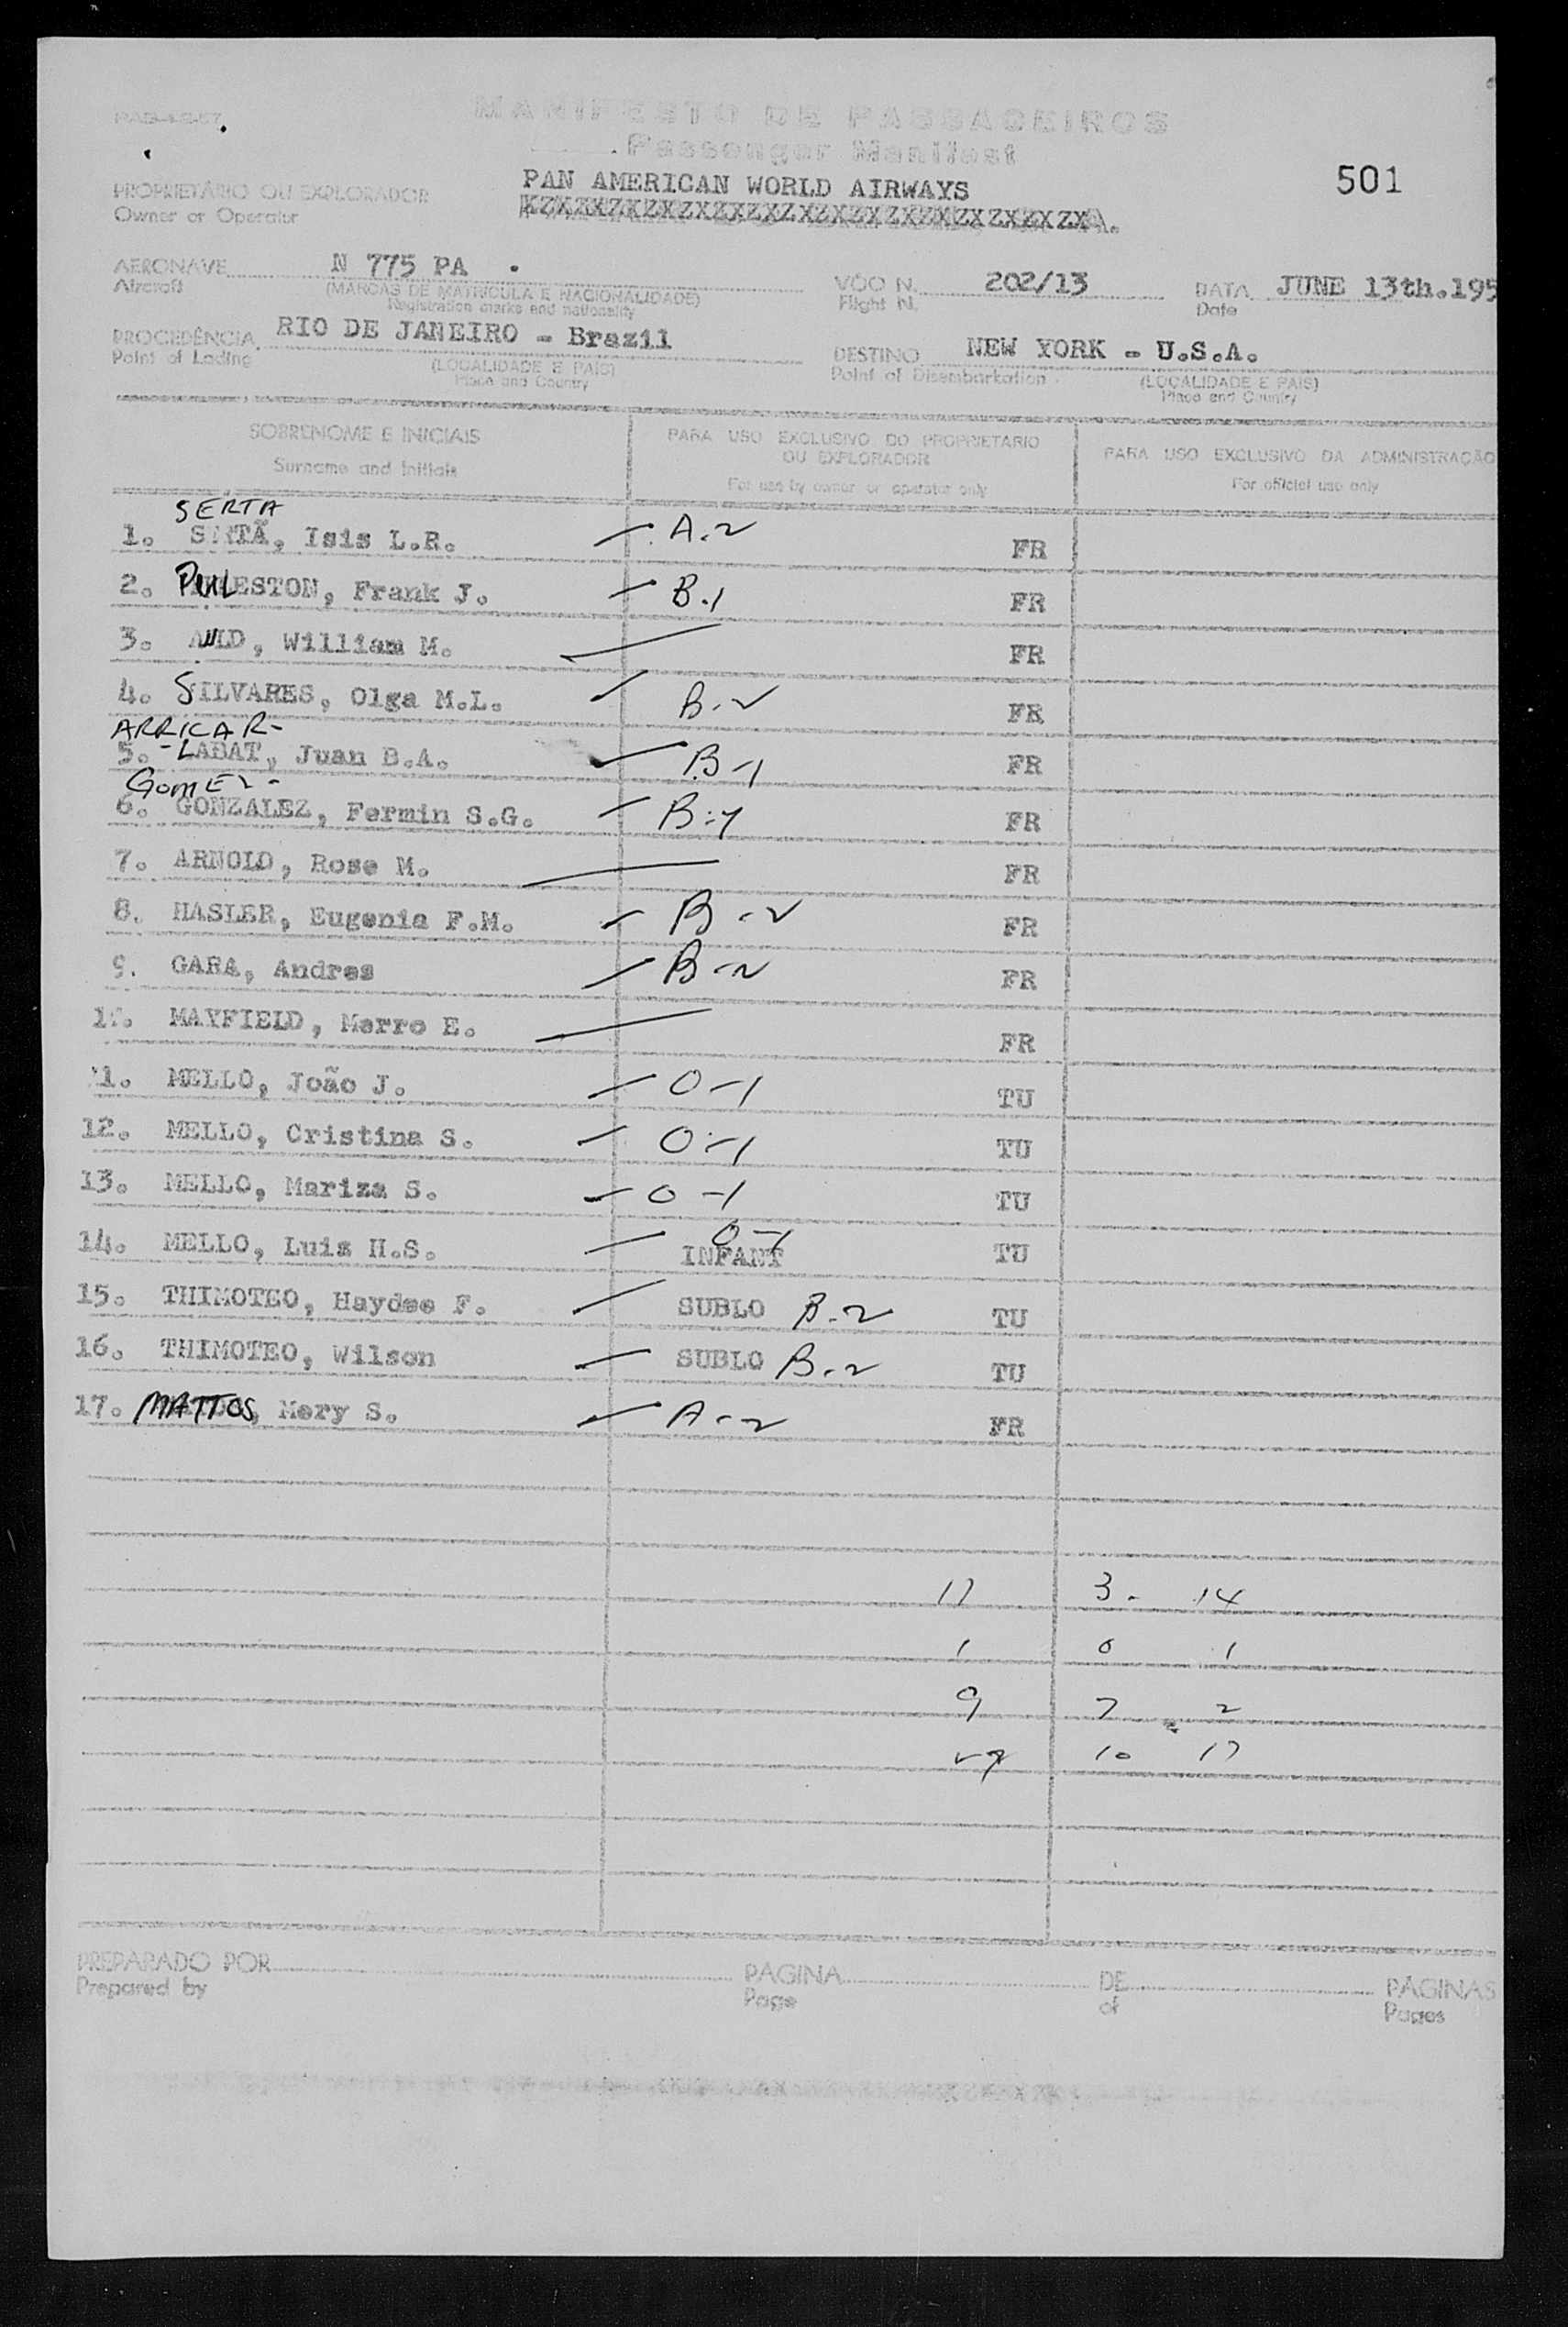 MANIFESTO DE PASSAGEIROS
Passenger Manifest
PAN AMERICAN WORLD AIRWAYS
501
PROPRIETÁRIO OU EXPLORADOR
Owner or Operator
AERONAVE N 775 PA VÔO N. 202/13 DATA JUNE 13th.195
Aircraft (MARCAS DE MATRICULA E NACIONALIDADE) Flight N. Date
Registration marks and nationality
PROCEDÊNCIA RIO DE JANEIRO - Brazil DESTINO NEW YORK - U.S.A.
Point of Lading (LOCALIDADE E PAIS) Point of Disembarkation (LOCALIDADE E PAIS)
Place and Country Place and Country
SOBRENOME E INICIAIS PARA USO EXCLUSIVO DO PROPRIETARIO OU EXPLORADOR PARA USO EXCLUSIVO DA ADMINISTRAÇÃO
Surname and Initials For use by owner or operator only For official use only
SERTA
1. SRTÃ, Isis L.R. A.2 FR
2. PULESTON, Frank J. B.1 FR
3. AULD, William M. FR
4. SILVARES, Olga M.L. B-2 FR
ARRICAR-
5. -LABAT, Juan B.A. B-1 FR
GOMEZ-
6. GONZALEZ, Fermin S.G. B-1 FR
7. ARNOLD, Rose M. FR
8. HASLER, Eugenia F.M. B-2 FR
9. GARA, Andres B-2 FR
10. MAYFIELD, Marro E. FR
11. MELLO, João J. O-1 TU
12. MELLO, Cristina S. O-1 TU
13. MELLO, Mariza S. O-1 TU
14. MELLO, Luiz H.S. O-1 INFANT TU
15. THIMOTEO, Haydee F. SUBLO B-2 TU
16. THIMOTEO, Wilson SUBLO B-2 TU
17. MATTOS, Mery S. A-2 FR
17 3- 14
1 0 1
9 7 2
27 10 17
PREPARADO POR PAGINA DE PÁGINAS
Prepared by Page of Pages